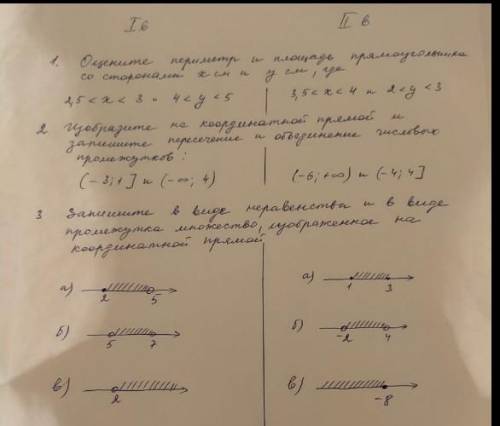 I в
II в
1. Оцените периметр и площадь прямоугольника
со сторонами x см и y см, где
2,5 < x < 3 и 4 < y < 5
3,5 < x < 4 и 2 < y < 3
2 Изобразите на координатной прямой и
запишите пересечение и объединение числовых
промежутков:
(-3; 1] и (-∞; 4)
(-6; +∞) и (-4; 4]
3 Запишите в виде неравенства и в виде
промежутка множество, изображенное на
координатной прямой
а) 2 5
б) 5 7
в) 2
а) 1 3
б) -2 4
в) -8